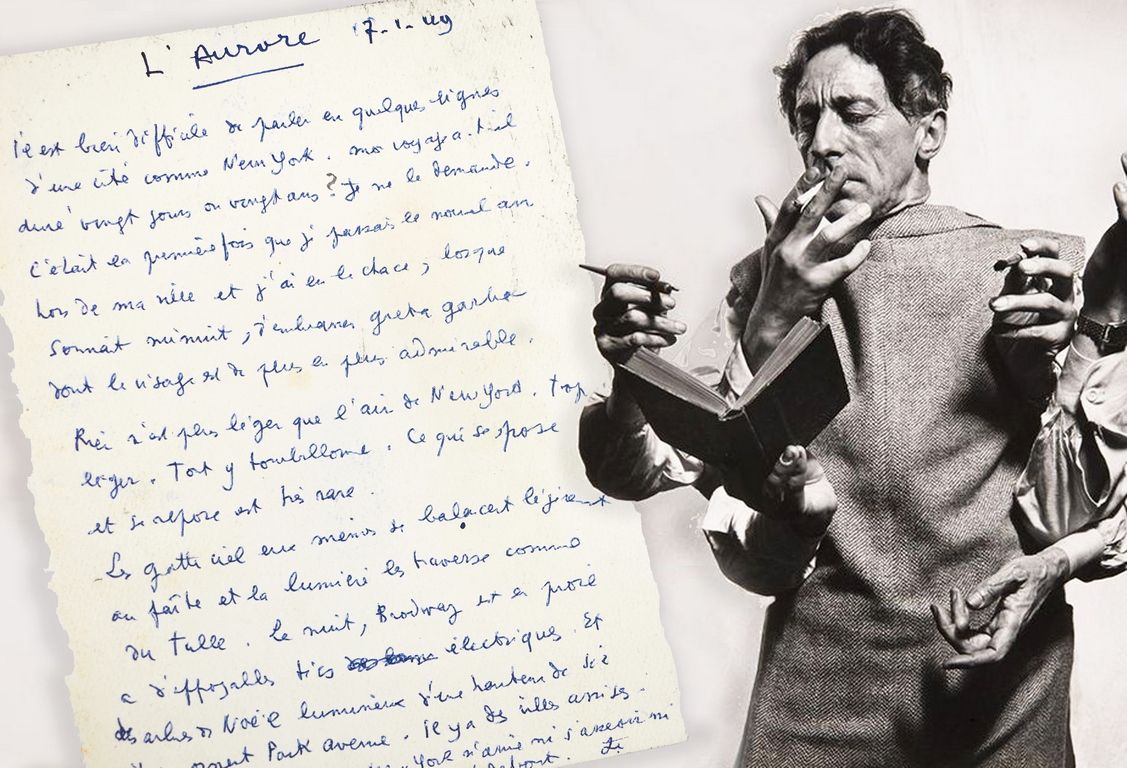 L'Aurore 7.1.49
Il est bien difficile de parler en quelques lignes
d'une cité comme New York. mon voyage a-t-il
duré vingt jours ou vingt ans ? Je me le demande.
C'était la première fois que je passais le nouvel an
hors de ma ville et j'ai eu la chance, lorsque
sonnait minuit, d'embrasser greta garbo
dont le visage est de plus en plus admirable.
Rien n'est plus léger que l'air de New York. trop
léger. Tout y tourbillonne. Ce qui se pose
et se repose est très rare.
Les gratte ciel eux mêmes se balancent légèrement
au faîte et la lumière les traverse comme
du tulle. la nuit, Brodway est en proie
a d'effroyables tics électriques. Et
des arbres de Noël lumineux d'une hauteur de
Park avenue. Il y a des villes assises.
York n'aime ni s'asseoir ni